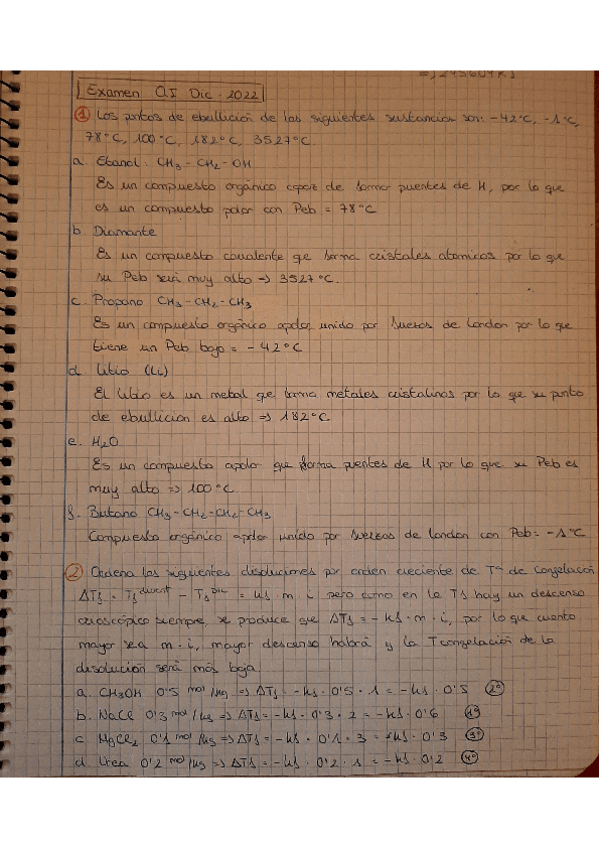 => 245604 KJ
Examen Q.I Dic. 2022
① Los puntos de ebullición de las siguientes sustancias son: -42ºC, -1ºC,
78ºC, 100ºC, 182ºC, 3527ºC.
a. Etanol: CH3-CH2-OH
Es un compuesto orgánico capaz de formar puentes de H, por lo que
es un compuesto polar con Peb = 78ºC
b Diamante
Es un compuesto covalente que forma cristales atomicos por lo que
su Peb será muy alto => 3527ºC.
c. Propano CH3-CH2-CH3
Es un compuesto orgánico apolar unido por fuerzas de London por lo que
tiene un Peb bajo = -42ºC
d. Litio (Li)
El litio es un metal que forma metales cristalinos por lo que su punto
de ebullicion es alto => 182ºC
e. H2O
Es un compuesto apolar que forma puentes de H por lo que su Peb es
muy alto => 100ºC
f. Butano CH3-CH2-CH2-CH3
Compuesto orgánico apolar unido por fuerzas de London con Peb= -1ºC
② Ordena las siguientes disoluciones por orden creciente de Tª de congelación
ΔTf = Tf - Tf = kf · m · i pero como en la Tf hay un descenso
crioscópico siempre, se produce que ΔTf = -kf · m · i, por lo que cuanto
mayor sea m · i, mayor descenso habrá y la Tcongelación de la
disolución será más baja
a. CH3OH 0'5 mol/kg => ΔTf = -kf · 0'5 · 1 = -kf · 0'5 2º
b. NaCl 0'3 mol/kg => ΔTf = -kf · 0'3 · 2 = -kf · 0'6 1º
c MgCl2 0'1 mol/kg => ΔTf = -kf · 0'1 · 3 = -kf · 0'3 3º
d Urea 0'2 mol/kg => ΔTf = -kf · 0'2 · 1 = -kf · 0'2 4º